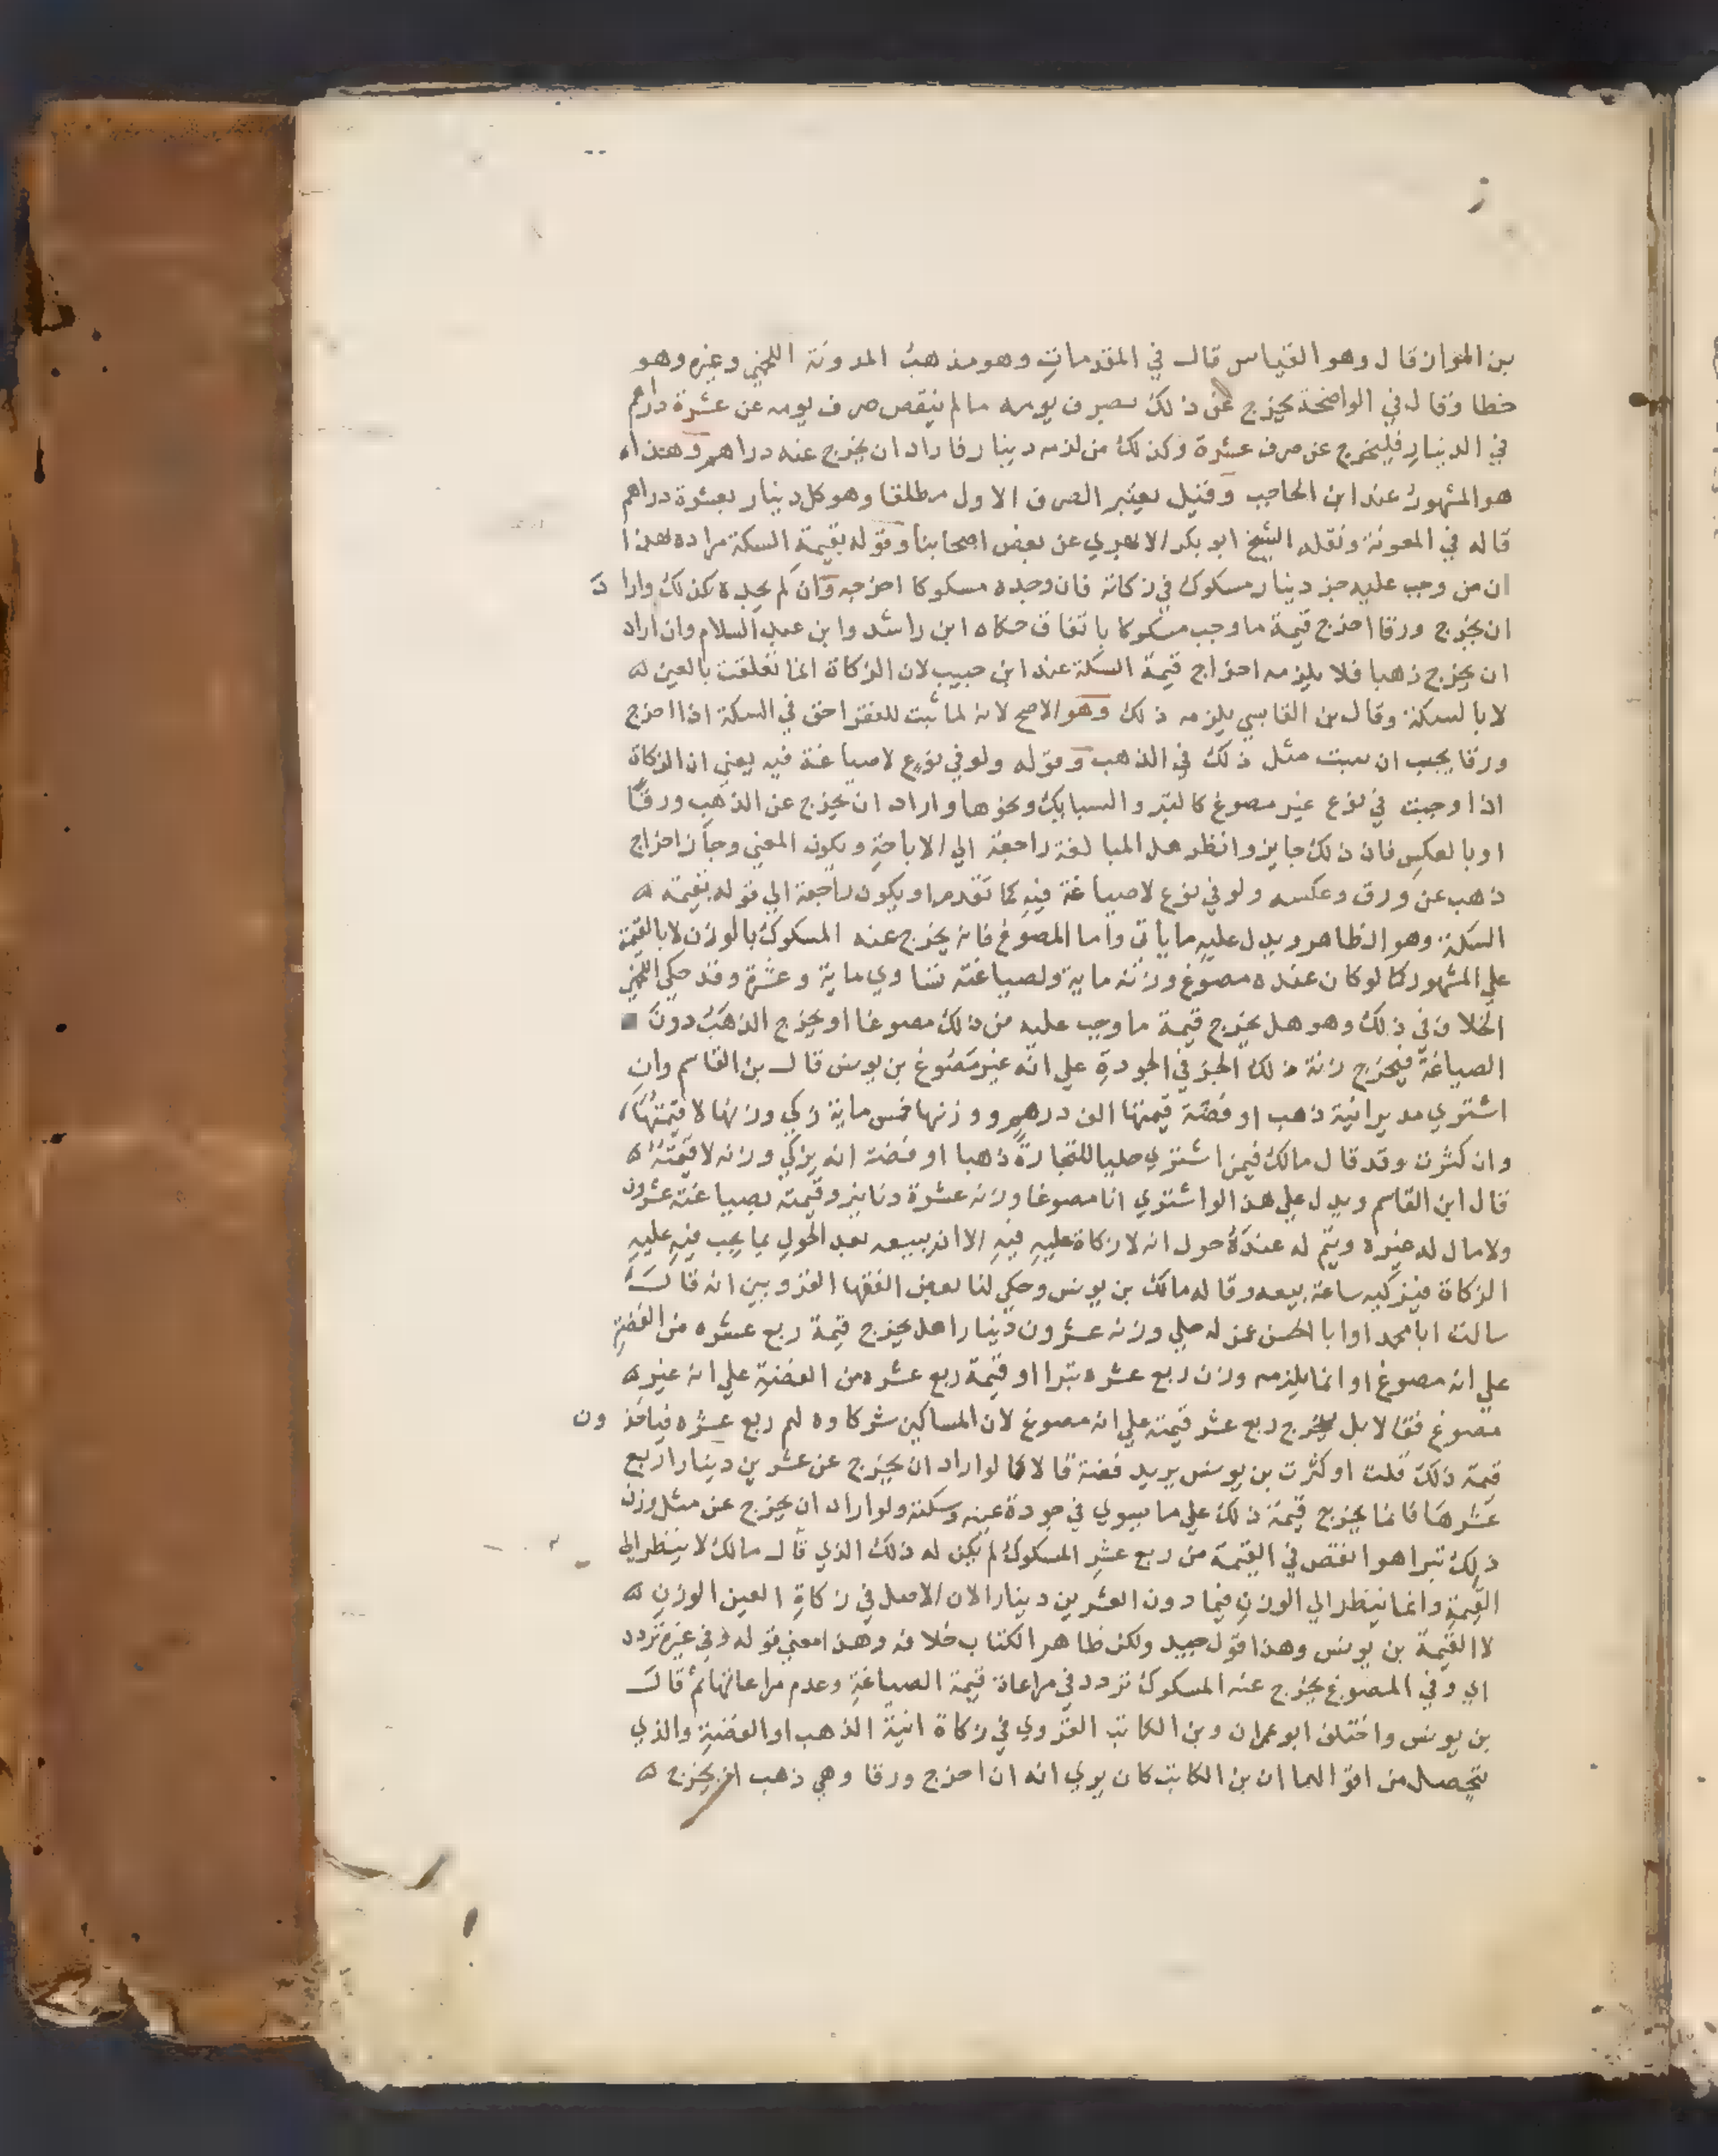 بن المواز قال وهو القياس قال في المقدمات وهو مذهب المدونة اللخمي وغيره وهو
خطا وقال في الواضحة يخرج عن ذلك بصرف يومه ما لم ينقص صرف يومه عن عشرة دراهم
في الدينار فليخرج عن صرف عشرة وكذلك من لزمه دينار فاراد ان يخرج عنه دراهم وهذا
هو المشهور عند ابن الحاجب وقيل يعتبر الصرف الاول مطلقا وهو كل دينار بعشرة دراهم
قاله في المعونة ونقله الشيخ ابو بكر الابهري عن بعض اصحابنا وقوله بقيمة السكة مراده بهذا
ان من وجب عليه جزء دينار مسكوك في زكاته فان وجده مسكوكا اخرجه وان لم يجده كذلك واراد
ان يخرج ورقا اخرج قيمة ما وجب مسكوكا باتفاق حكاه ابن راشد وابن عبد السلام وان اراد
ان يخرج ذهبا فلا يلزمه اخراج قيمة السكة عند ابن حبيب لان الزكاة انما تعلقت بالعين
لا بالسكة وقال بن القابسي يلزمه ذلك وهو الاصح لانه لما ثبت للفقرا حق في السكة اذا اخرج
ورقا يجب ان يثبت مثل ذلك في الذهب وقوله ولو في نوع لا صياغة فيه يعني ان الزكاة
اذا وجبت في نوع غير مصوغ كالتبر والسبايك ونحوها واراد ان يخرج عن الذهب ورقا
او بالعكس فان ذلك جايز وانظر هل المبالغة راجعة الي الاباحة ويكون المعني وجاز اخراج
ذهب عن ورق وعكسه ولو في نوع لا صياغة فيه كما تقدم او يكون راجعة الي قوله بقيمة
السكة وهو الظاهر ويدل عليه ما ياتي واما المصوغ فانه يخرج عنه المسكوك بالوزن لا بالقيمة
علي المشهور كما لو كان عنده مصوغ وزنته ماية ولصياغته تساوي ماية وعشرة وقد حكي اللخمي
الخلاف في ذلك وهو هل يخرج قيمة ما وجب عليه من ذلك مصوغا او يخرج الذهب دون
الصياغة فيخرج زنة ذلك الجزء في الجودة علي انه غير مصوغ بن يونس قال بن القاسم وان
اشتري مدير انية ذهب او فضة قيمتها الف درهم ووزنها خمس ماية زكي وزنها لا قيمتها
وان كثرت وقد قال مالك فيمن اشتري حليا للتجارة ذهبا او فضة انه يزكي وزنه لا قيمته
قال ابن القاسم ويدل علي هذا لو اشتري انا مصوغا وزنه عشرة دنانير وقيمته بصياغته عشرون
ولا مال له غيره ويتم له عنده حول انه لا زكاة عليه فيه الا ان يبيعه بعد الحول بما يجب فيه عليه
الزكاة فيزكيه ساعة بيعه وقاله مالك بن يونس وحكي لنا بعض الفقها القرويين انه قال
سالت ابا محمد او ابا الحسن عن له حلي وزنه عشرون دينارا هل يخرج قيمة ربع عشره من الفضة
علي انه مصوغ او انما يلزمه وزن ربع عشره تبرا او قيمة ربع عشره من الفضة علي انه غير
مصوغ فقالا بل يخرج ربع عشر قيمته علي انه مصوغ لان المساكين شركاوه لهم ربع عشره فياخذون
قيمة ذلك قلت او كثرت بن يونس يريد فضة قالا كما لو اراد ان يخرج عن عشرين دينارا ربع
عشرها فانما يخرج قيمة ذلك علي ما يسوي في جودة عينه وسكته ولو اراد ان يخرج عن مثل وزن
ذلك تبرا هو انقص في القيمة من ربع عشر المسكوك لم يكن له ذلك الذي قال مالك لا ينظر الي
القيمة وانما ينظر الي الوزن فيما دون العشرين دينارا لان الاصل في زكاة العين الوزن
لا القيمة بن يونس وهذا قول جيد ولكن ظاهر الكتاب خلافه وهذا معني قوله وفي غيره تردد
اي وفي المصوغ يخرج عنه المسكوك تردد في مراعاة قيمة الصياغة وعدم مراعاتها ثم قال
بن يونس واختلف ابو عمران وبن الكاتب القروي في زكاة انية الذهب او الفضة والذي
يتحصل من اقوالهما ان بن الكاتب كان يري انه ان اخرج ورقا وهي ذهب اخرج